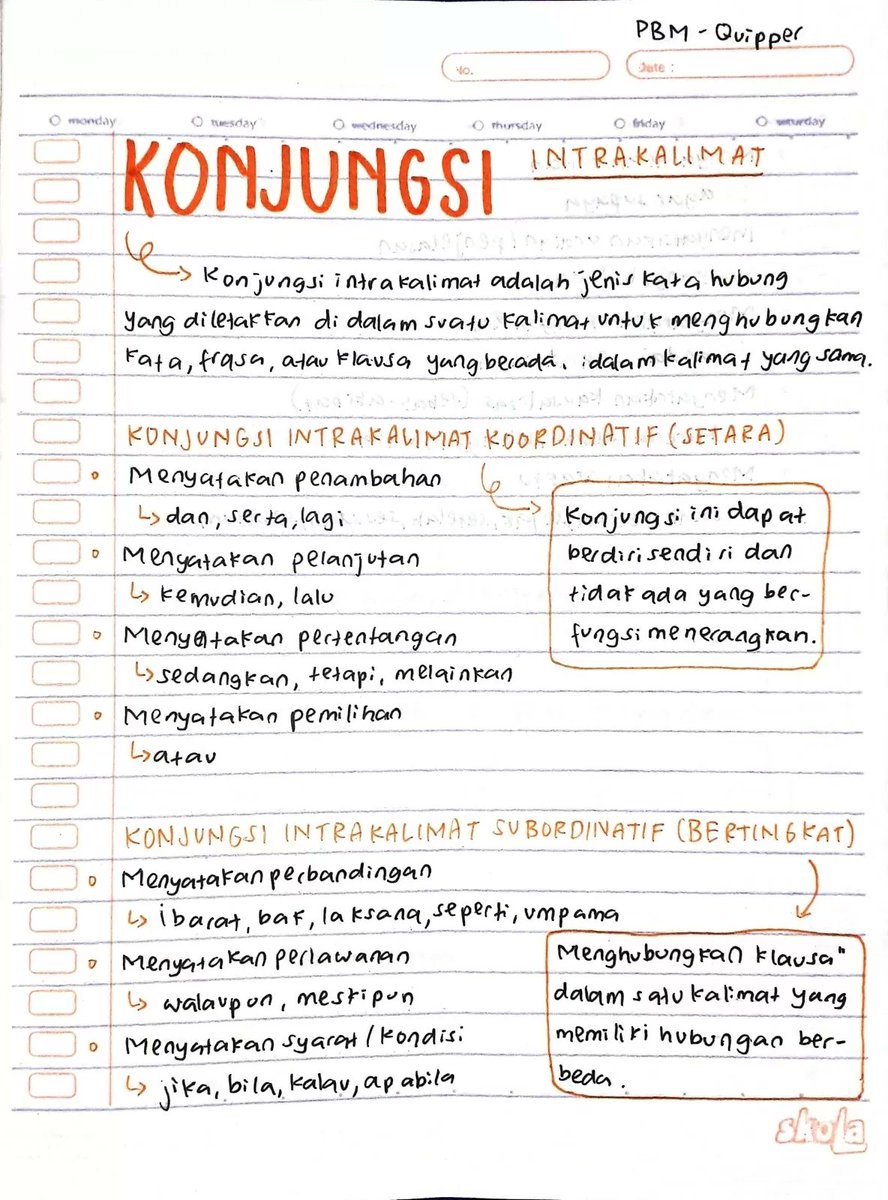 PBM - Quipper
No.
Date :
monday tuesday wednesday thursday friday saturday
KONJUNGSI INTRAKALIMAT
Konjungsi intrakalimat adalah jenis kata hubung
yang diletakkan di dalam suatu kalimat untuk menghubungkan
kata, frasa, atau klausa yang berada. idalam kalimat yang sama.
KONJUNGSI INTRAKALIMAT KOORDINATIF (SETARA)
Menyatakan penambahan
↳ dan, serta, lagi
Konjungsi ini dapat
berdiri sendiri dan
tidak ada yang ber-
fungsi menerangkan.
Menyatakan pelanjutan
↳ kemudian, lalu
Menyatakan pertentangan
↳ sedangkan, tetapi, melainkan
Menyatakan pemilihan
↳ atau
KONJUNGSI INTRAKALIMAT SUBORDINATIF (BERTINGKAT)
Menyatakan perbandingan
↳ ibarat, bak, laksana, seperti, umpama
Menyatakan perlawanan
↳ walaupun, meskipun
Menyatakan syarat / kondisi
↳ jika, bila, kalau, apabila
Menghubungkan klausa"
dalam satu kalimat yang
memiliki hubungan ber-
beda.
skula